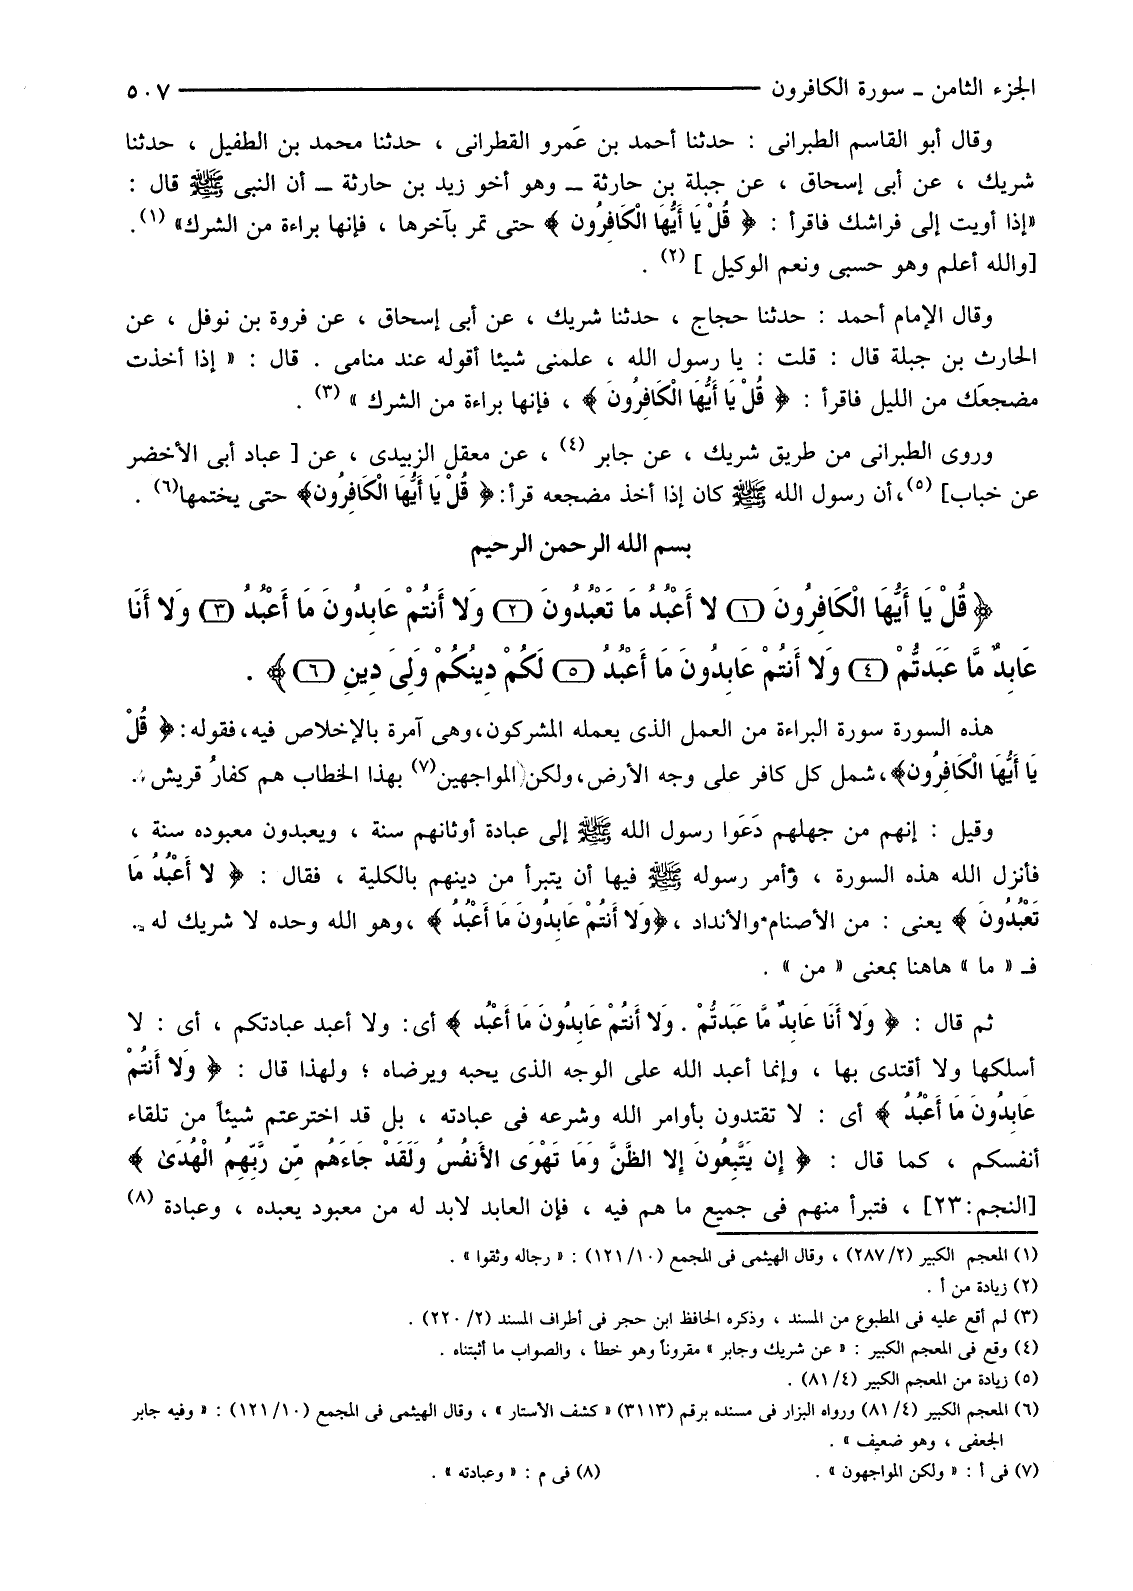 الجزء الثامن ــ سورة الكافرون ٥٠٧
وقال أبو القاسم الطبرانى : حدثنا أحمد بن عَمرو القطرانى ، حدثنا محمد بن الطفيل ، حدثنا
شريك ، عن أبى إسحاق ، عن جبلة بن حارثة ــ وهو أخو زيد بن حارثة ــ أن النبى ﷺ قال :
«إذا أويت إلى فراشك فاقرأ : ﴿ قُلْ يَا أَيُّهَا الْكَافِرُون ﴾ حتى تمر بآخرها ، فإنها براءة من الشرك» (١) .
[والله أعلم وهو حسبى ونعم الوكيل ] (٢) .
وقال الإمام أحمد : حدثنا حجاج ، حدثنا شريك ، عن أبى إسحاق ، عن فروة بن نوفل ، عن
الحارث بن جبلة قال : قلت : يا رسول الله ، علمنى شيئا أقوله عند منامى . قال : « إذا أخذت
مضجعَك من الليل فاقرأ : ﴿ قُلْ يَا أَيُّهَا الْكَافِرُونَ ﴾ ، فإنها براءة من الشرك » (٣) .
وروى الطبرانى من طريق شريك ، عن جابر (٤) ، عن معقل الزبيدى ، عن [ عباد أبى الأخضر
عن خباب] (٥)، أن رسول الله ﷺ كان إذا أخذ مضجعه قرأ: ﴿ قُلْ يَا أَيُّهَا الْكَافِرُون﴾ حتى يختمها(٦) .
بسم الله الرحمن الرحيم
﴿ قُلْ يَا أَيُّهَا الْكَافِرُونَ (١) لا أَعْبُدُ مَا تَعْبُدُونَ (٢) وَلا أَنتُمْ عَابِدُونَ مَا أَعْبُدُ (٣) وَلا أَنَا
عَابِدٌ مَّا عَبَدتُّمْ (٤) وَلا أَنتُمْ عَابِدُونَ مَا أَعْبُدُ (٥) لَكُمْ دِينُكُمْ وَلِىَ دِينِ (٦) ﴾ .
هذه السورة سورة البراءة من العمل الذى يعمله المشركون، وهى آمرة بالإخلاص فيه، فقوله: ﴿ قُلْ
يَا أَيُّهَا الْكَافِرُون﴾، شمل كل كافر على وجه الأرض، ولكن المواجهين(٧) بهذا الخطاب هم كفارُ قريش .
وقيل : إنهم من جهلهم دَعَوا رسول الله ﷺ إلى عبادة أوثانهم سنة ، ويعبدون معبوده سنة ،
فأنزل الله هذه السورة ، وأمر رسوله ﷺ فيها أن يتبرأ من دينهم بالكلية ، فقال : ﴿ لا أَعْبُدُ مَا
تَعْبُدُونَ ﴾ يعنى : من الأصنام والأنداد ، ﴿وَلا أَنتُمْ عَابِدُونَ مَا أَعْبُدُ ﴾ ، وهو الله وحده لا شريك له .
فـ « ما » هاهنا بمعنى « من » .
ثم قال : ﴿ وَلا أَنَا عَابِدٌ مَّا عَبَدتُّمْ . وَلا أَنتُمْ عَابِدُونَ مَا أَعْبُد ﴾ أى: ولا أعبد عبادتكم ، أى : لا
أسلكها ولا أقتدى بها ، وإنما أعبد الله على الوجه الذى يحبه ويرضاه ؛ ولهذا قال : ﴿ وَلا أَنتُمْ
عَابِدُونَ مَا أَعْبُدُ ﴾ أى : لا تقتدون بأوامر الله وشرعه فى عبادته ، بل قد اخترعتم شيئاً من تلقاء
أنفسكم ، كما قال : ﴿ إِن يَتَّبِعُونَ إِلا الظَّنَّ وَمَا تَهْوَى الأَنفُسُ وَلَقَدْ جَاءَهُم مِّن رَّبِّهِمُ الْهُدَىٰ ﴾
[النجم:٢٣] ، فتبرأ منهم فى جميع ما هم فيه ، فإن العابد لابد له من معبود يعبده ، وعبادة (٨)
(١) المعجم الكبير (٢/ ٢٨٧) ، وقال الهيثمى فى المجمع (١٠/ ١٢١) : « رجاله وثقوا » .
(٢) زيادة من أ .
(٣) لم أقع عليه فى المطبوع من المسند ، وذكره الحافظ ابن حجر فى أطراف المسند (٢/ ٢٢٠) .
(٤) وقع فى المعجم الكبير : « عن شريك وجابر » مقروناً وهو خطأ ، والصواب ما أثبتناه .
(٥) زيادة من المعجم الكبير (٤/ ٨١) .
(٦) المعجم الكبير (٤/ ٨١) ورواه البزار فى مسنده برقم (٣١١٣) « كشف الأستار » ، وقال الهيثمى فى المجمع (١٠/ ١٢١) : « وفيه جابر
الجعفى ، وهو ضعيف » .
(٧) فى أ : « ولكن المواجهون » . (٨) فى م : « وعبادته » .